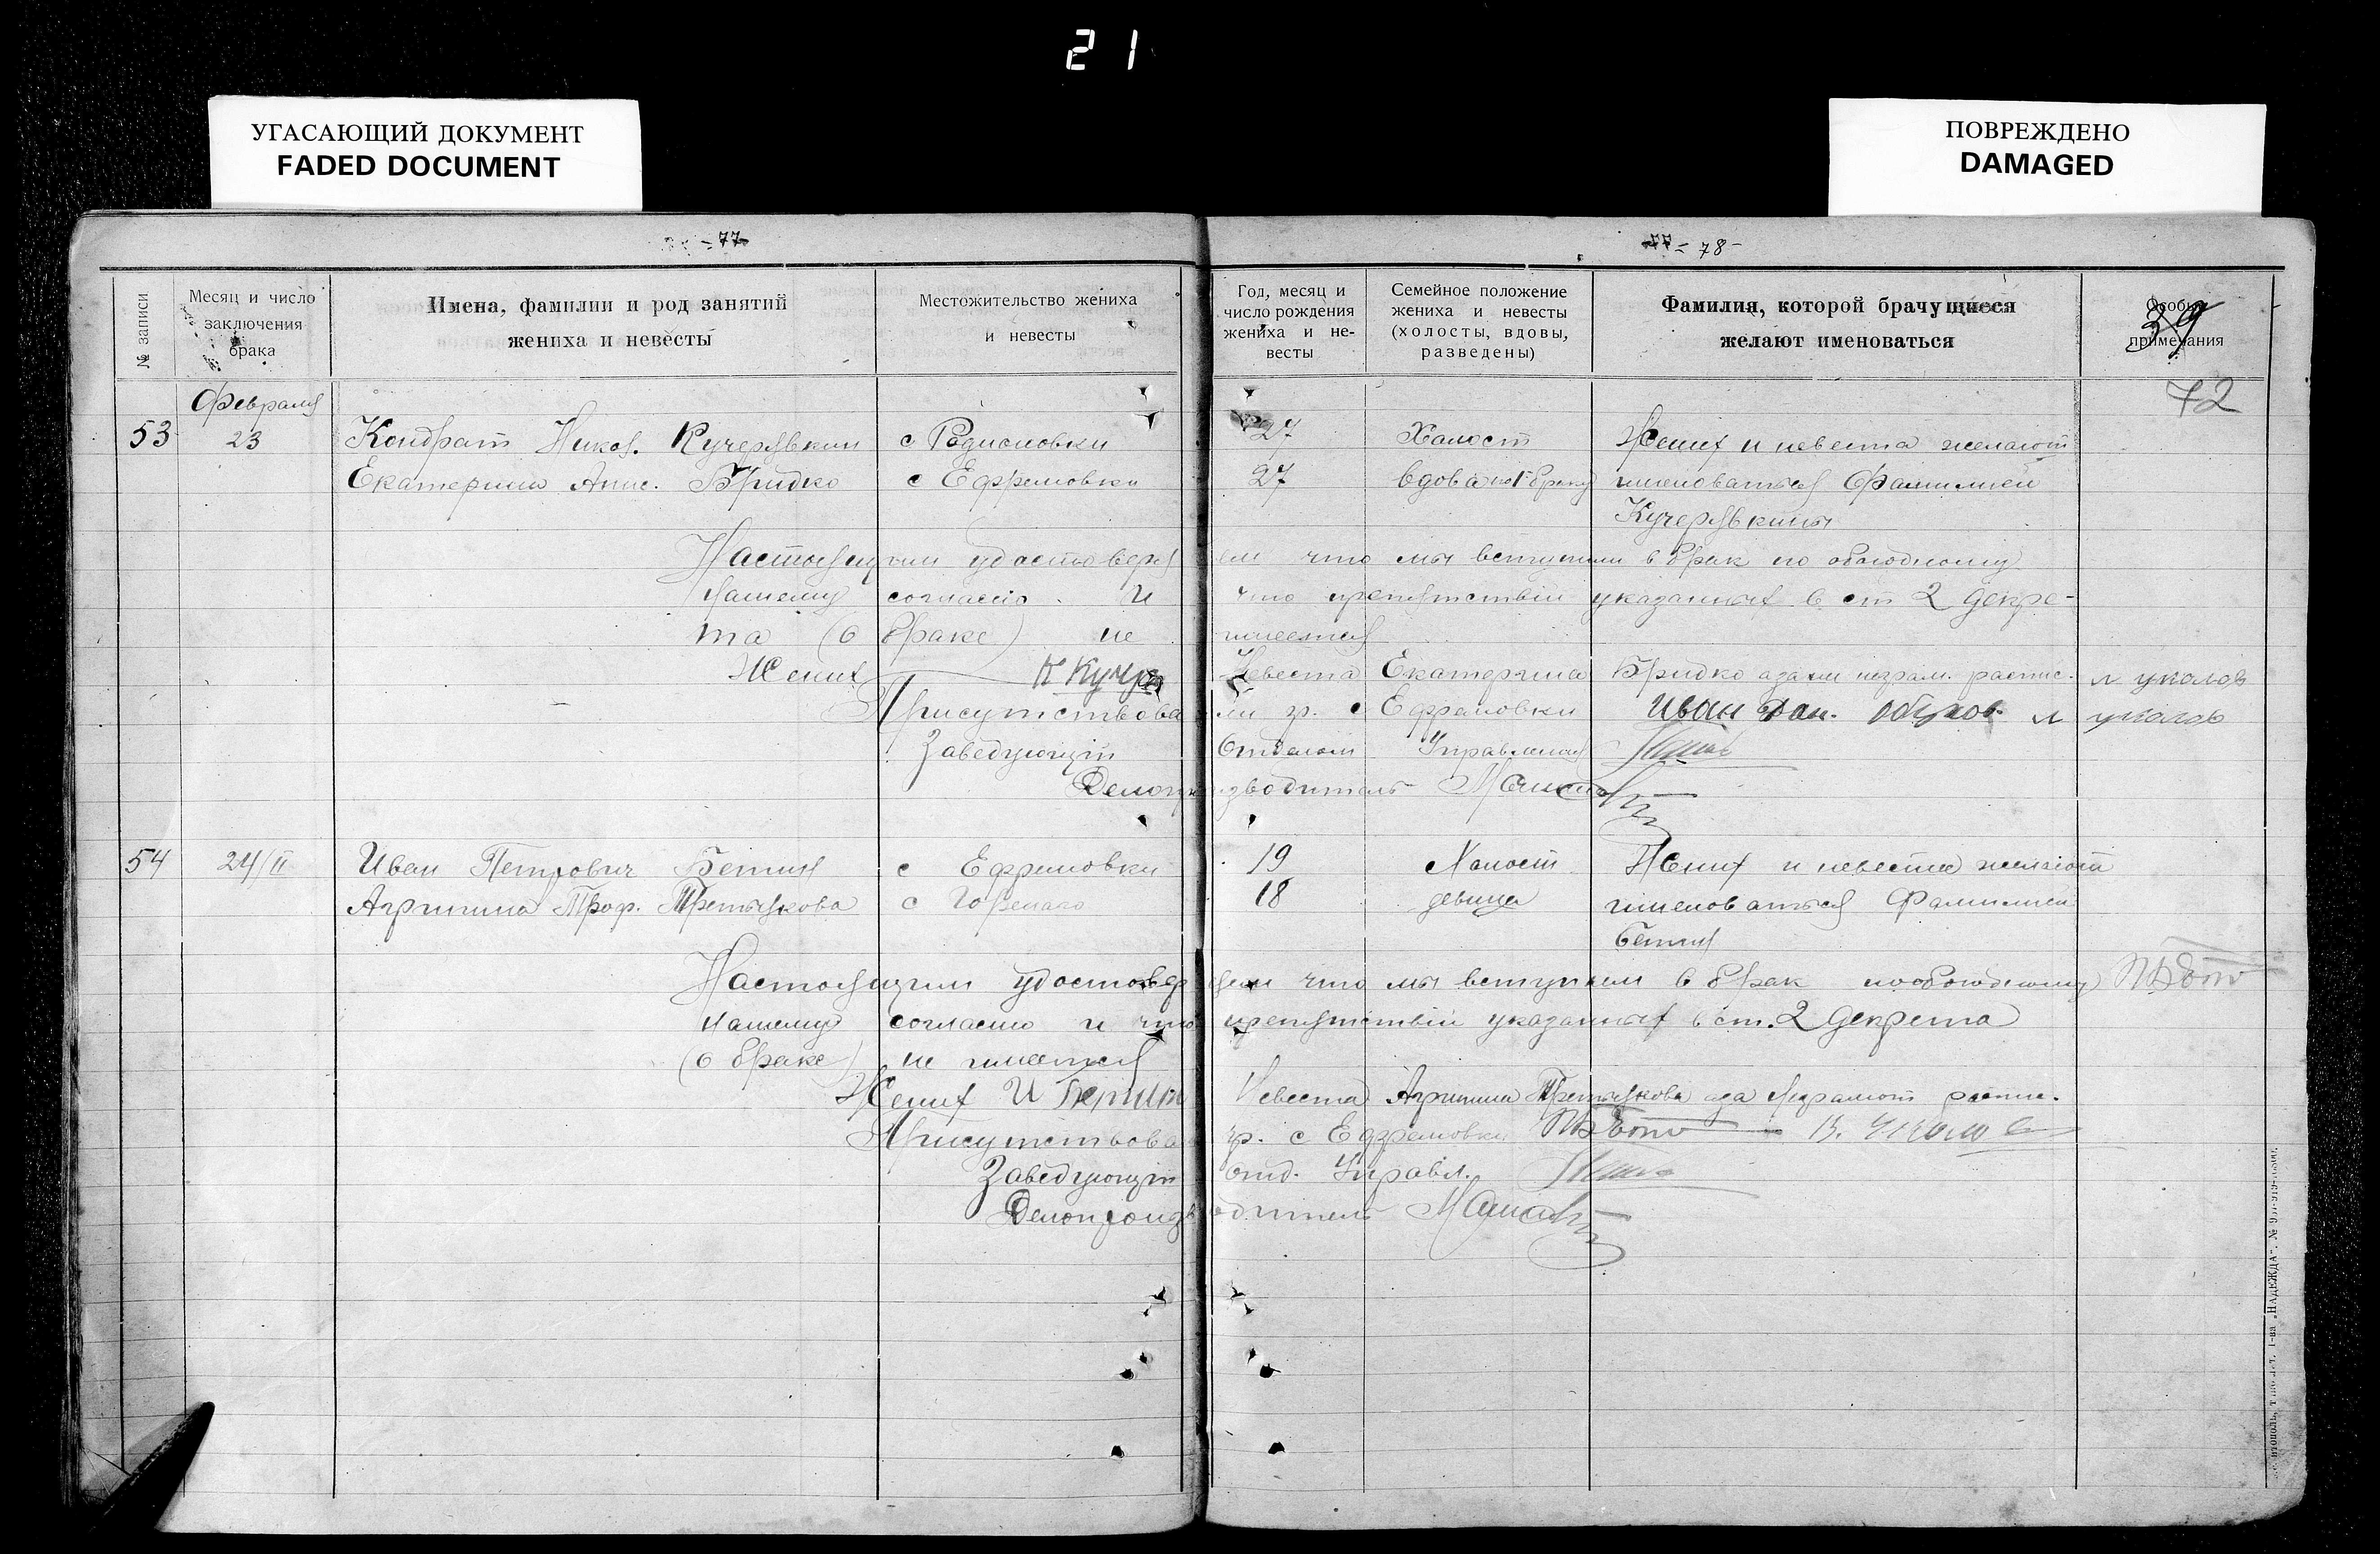 21
УГАСАЮЩИЙ ДОКУМЕНТ
FADED DOCUMENT
ПОВРЕЖДЕНО
DAMAGED
- 77-
77 - 78-
№ записи
Месяц и число заключения брака
Имена, фамилии и род занятий жениха и невесты
Местожительство жениха и невесты
Год, месяц и число рождения жениха и невесты
Семейное положение жениха и невесты (холосты, вдовы, разведены)
Фамилия, которой брачущиеся желают именоваться
Особые примечания
39
72
Февраля
53 23 Кондрат Никол. Кучерявкин с Родионовки 27 Холост Жених и невеста желают
Екатерина Анис. Бридко с Ефремовки 27 вдова по 1 браку именоваться Фамилией
Кучерявкины
Настоящим удостоверяем что мы вступили в брак по обоюдному
нашему согласию. И что препятствий указанных в ст 2 декре-
та (о браке) не имеется
Жених К Кучер Невеста Екатерина Бридко а за нея неграм. распис.
Присутствовали гр. с Ефремовки Иван
Заведующий Отделом Управления
Делопроизводитель
54 24/II Иван Петрович с Ефремовки 19 Холост Жених и невеста желают
Агрипина Троф. Третьякова с Горелаго 18 девица именоваться Фамилией
Настоящим удостоверяем что мы вступили в брак по обоюдному
нашему согласию и что препятствий указанных в ст. 2 декрета
(о браке) не имеется
Жених И Невеста Агрипина Третьякова
Присутствова гр. с Ефремовки
Заведующий отд. Управл.
Делопроизводитель